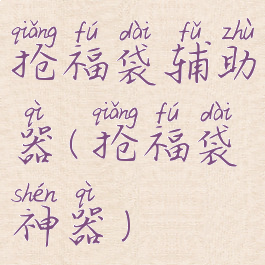 qiǎng fú dài fǔ zhù
抢福袋辅助
qì qiǎng fú dài
器(抢福袋
shén qì
神器)